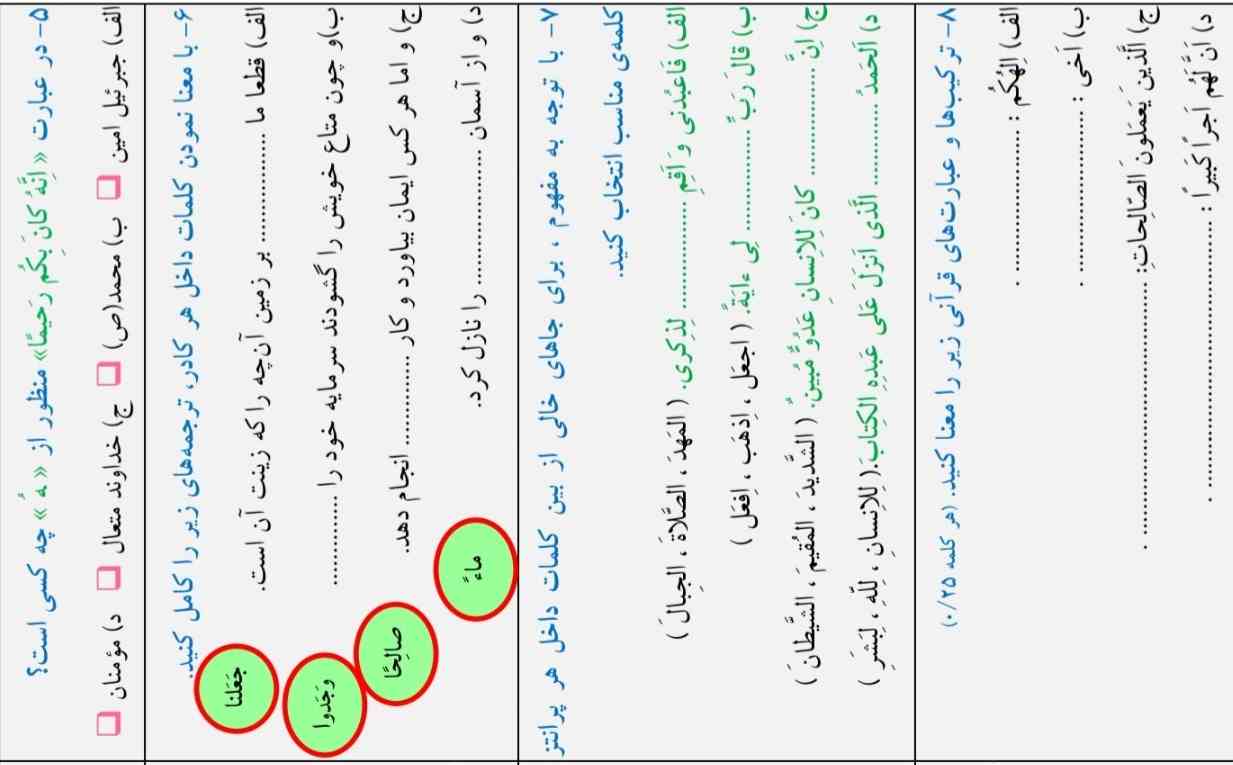 ۵- در عبارت «اِنَّهُ کانَ بِکُم رَحیمًا» منظور از « ـهُ » چه کسی است؟
الف) جبرئیل امین ب) محمد(ص) ج) خداوند متعال د) مؤمنان
۶- با معنا نمودن کلمات داخل هر کادر، ترجمه‌های زیر را کامل کنید.
الف) قطعا ما .............. بر زمین آن‌چه را که زینت آن است.
جَعَلنا
ب)و چون متاع خویش را گشودند سرمایه خود را ..............
وَجَدوا
ج) و اما هر کس ایمان بیاورد و کار .............. انجام دهد.
صالِحًا
د) و از آسمان .............. را نازل کرد.
ماءً
۷- با توجه به مفهوم ، برای جاهای خالی از بین کلمات داخل هر پرانتز
کلمه‌ی مناسب انتخاب کنید.
الف) فَاعبُدنی وَ اَقِمِ .............. لِذِکری. ( المَهدَ ، الصَّلاةَ ، الجِبالَ )
ب) قالَ رَبِّ .............. لی ءایَةً. ( اجعَل ، اِذهَب ، اِفعَل )
ج) اِنَّ .............. کانَ لِلاِنسانِ عَدُوًّ مُبینً. ( الشَّدیدَ ، المُقیمَ ، الشَّیطانَ )
د) اَلحَمدُ .............. الَّذی اَنزَلَ عَلی عَبدِهِ الکِتابَ. ( لِلاِنسانِ ، لِلّهِ ، لِبَشَرٍ )
۸- ترکیب‌ها و عبارت‌های قرآنی زیر را معنا کنید. (هر کلمه ۰/۲۵)
الف) اِلهُکُم : ..............
ب) اَخی : ..............
ج) اَلَّذینَ یَعمَلونَ الصّالِحاتِ: ..............
د) اَنَّ لَهُم اَجرًا کَبیرًا : ..............